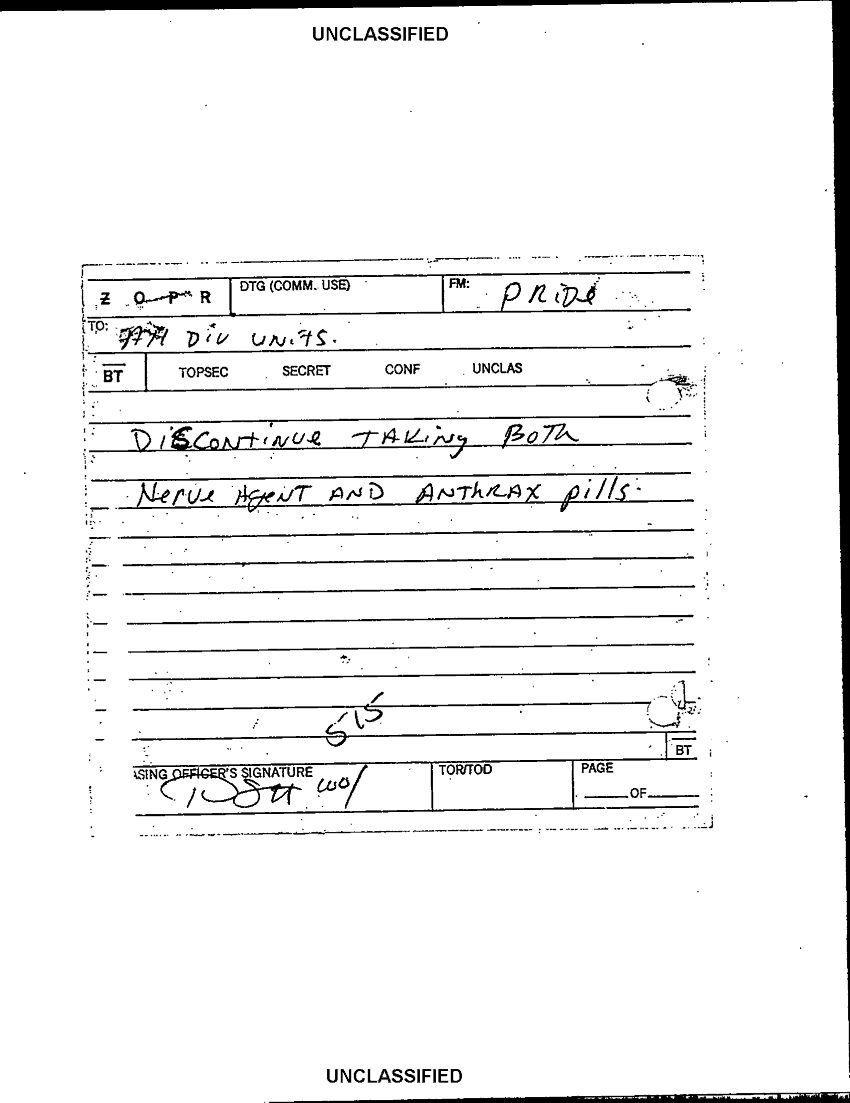 UNCLASSIFIED
Z O P R
DTG (COMM. USE)
FM: PRiDe
TO: DiV UNiTS.
BT TOPSEC SECRET CONF UNCLAS
DiSCONTiNUe TAKiNg BOTh
Nerve AgeNT AND ANThRAX pills.
515
BT
ASING OFFICER'S SIGNATURE
TOR/TOD
PAGE
OF
UNCLASSIFIED